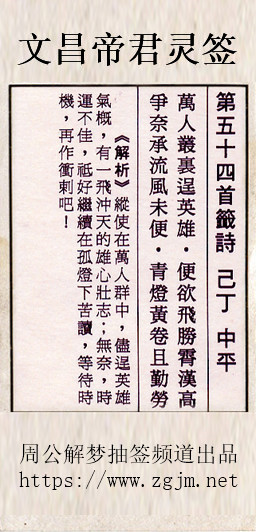 文昌帝君灵签
第五十四首籤詩 己丁 中平
萬人叢裏逞英雄・便欲飛勝霄漢高
爭奈承流風未便・青燈黃卷且勤勞
《解析》縱使在萬人群中，儘逞英雄
氣概，有一飛沖天的雄心壯志；無奈，時
運不佳，祗好繼續在孤燈下苦讀，等待時
機，再作衝刺吧！
周公解梦抽签频道出品
https://www.zgjm.net